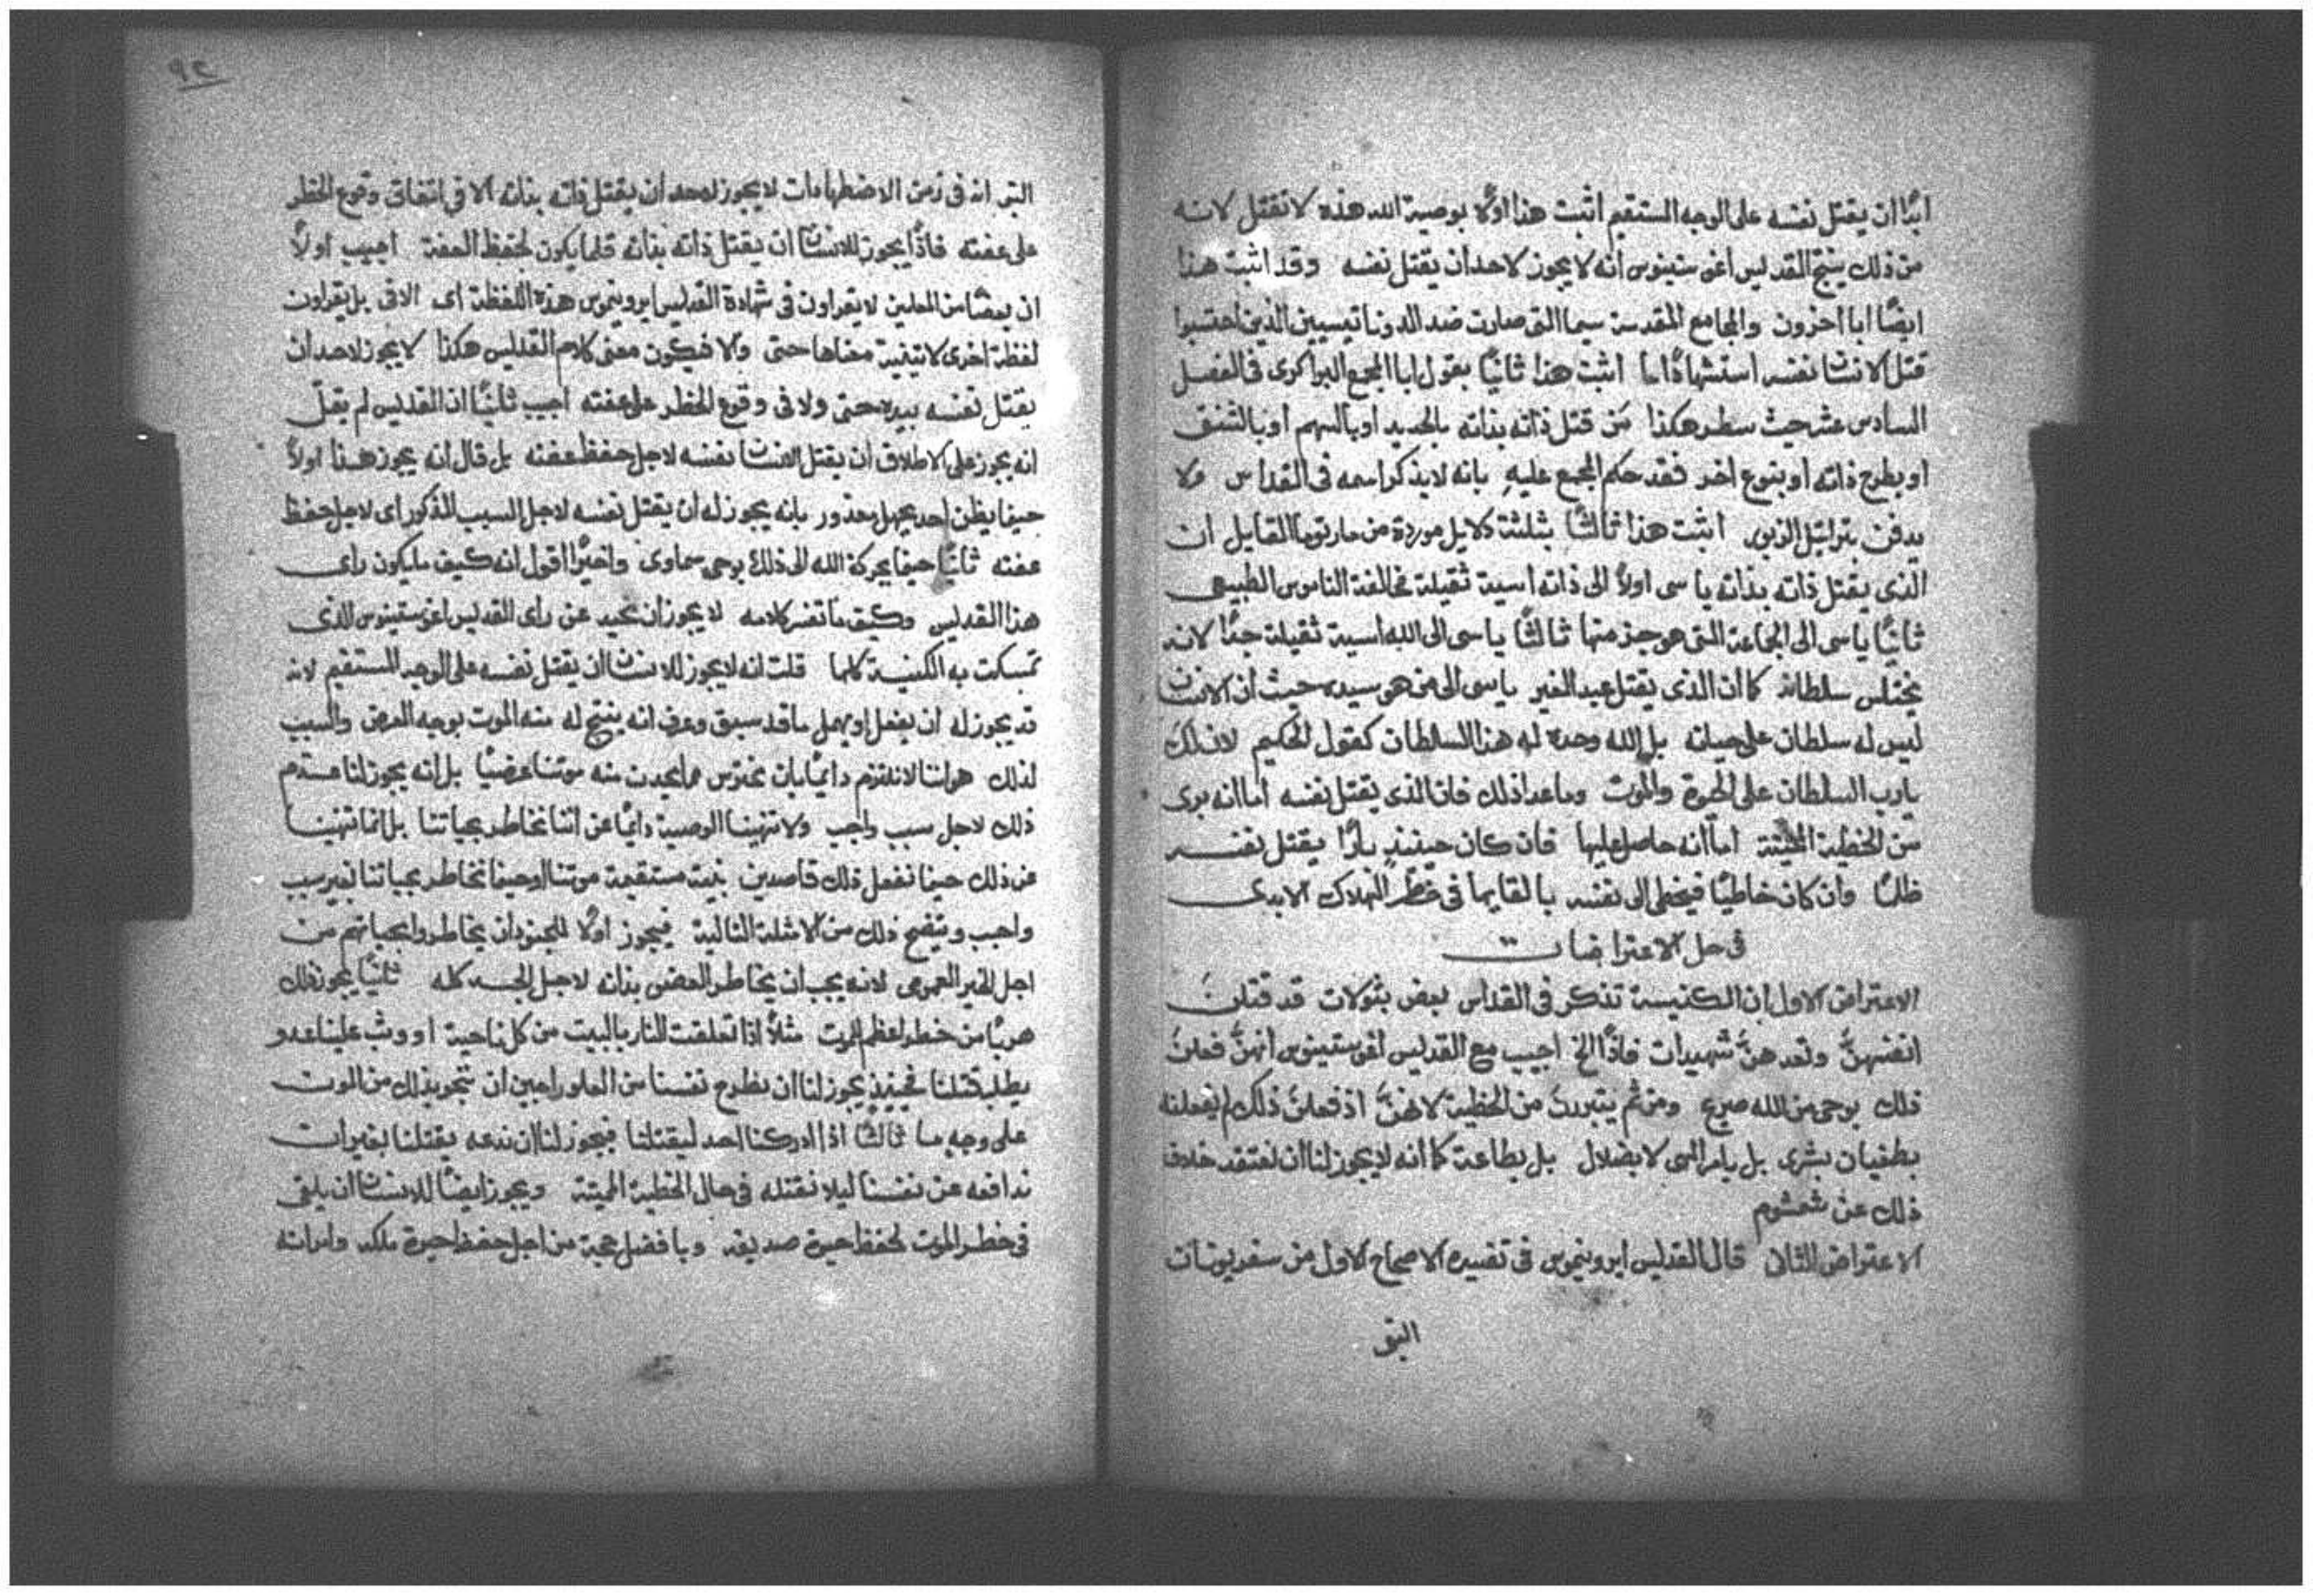 ابدًا ان يقتل نفسه على الوجه المستقيم اثبت هذا اولًا بوصية الله هذه لا تقتل لانه
من ذلك ينتج القديس اغوستينوس انه لا يجوز لاحد ان يقتل نفسه وقد اثبت هذا
ايضًا ابا اخرون والمجامع المقدسة سيما التى صارت ضد الدوناتيسيين الذين احتسبوا
قتل الانسان نفسه استشهادًا اثبت هذا ثانيًا بقول ابا المجمع البراكرى فى الفصل
السادس عشر حيث سطر هكذا من قتل ذاته بذاته بالحديد او بالسهم او بالشنق
او بطرح ذاته او بنوع اخر فقد حكم المجمع عليه بانه لا يذكر اسمه فى القداس ولا
يدفن بتراتيل الزبور اثبت هذا ثالثًا بثلثة دلايل موردة من مار توما القايل ان
الذى يقتل ذاته بذاته ياسى اولًا الى ذاته اسية ثقيلة مخالفة الناموس الطبيعى
ثانيًا ياسى الى الجماعة التى هو جز منها ثالثًا ياسى الى الله اسية ثقيلة جدًا لانه
يختلس سلطانه كما ان الذى يقتل عبد الغير ياسى الى من هو سيده حيث ان الانسان
ليس له سلطان على حياته بل الله وحده له هذا السلطان كقول الحكيم لان لك
يا رب السلطان على الحيوة والموت وما عدا ذلك فان الذى يقتل نفسه اما انه برى
من الخطية المميتة اما انه حاصل عليها فان كان حينيذٍ بارًا يقتل نفسه
ظلمًا وان كان خاطيًا فيخطى الى نفسه بالقايها فى خطر الهلاك الابدى
فى حل الاعتراضات
الاعتراض الاول ان الكنيسة تذكر فى القداس بعض بتولات قد قتلنَ
انفسهنَّ وتعدهنَّ شهيدات فاذًا الخ اجيب مع القديس اغوستينوس انهنَّ فعلنَ
ذلك بوحى من الله صريح ومن ثم يتبررنَ من الخطية لانهنَّ اذ فعلنَ ذلك لم يفعلنه
بطغيان بشرى بل بامر الهى لا بضلال بل بطاعة كما انه لا يجوز لنا ان نعتقد خلاف
ذلك عن شمشوم
الاعتراض الثانى قال القديس ايرونيموس فى تفسيره الاصحاح الاول من سفر يونان
النبى
٩٢
النبى انه فى زمن الاضطهادات لا يجوز لاحد ان يقتل ذاته بذاته الا فى اتفاق وقوع الخطر
على عفته فاذًا يجوز للانسان ان يقتل ذاته بذاته قلما يكون لحفظ العفة اجيب اولًا
ان بعضًا من المعلمين لا يقراون فى شهادة القديس ايرونيموس هذه اللفظة اى الا فى بل يقراون
لفظة اخرى لاتينية معناها حتى ولا فيكون معنى كلام القديس هكذا لا يجوز لاحد ان
يقتل نفسه بيده حتى ولا فى وقوع الخطر على عفته اجيب ثانيًا ان القديس لم يقل
انه يجوز على الاطلاق ان يقتل الانسان نفسه لاجل حفظ عفته بل قال انه يجوز هذا اولًا
حينما يظن احد بجهل معذور بانه يجوز له ان يقتل نفسه لاجل السبب المذكور اى لاجل حفظ
عفته ثانيًا حينما يحركه الله الى ذلك بوحى سماوى واخيرًا اقول انه كيف ما يكون راى
هذا القديس وكيف ما تفسر كلامه لا يجوز ان نحيد عن راى القديس اغوستينوس الذى
تمسكت به الكنيسة كلها قلت انه لا يجوز للانسان ان يقتل نفسه على الوجه المستقيم لانه
قد يجوز له ان يفعل او يهمل ما قد سبق وعرف انه ينتج له منه الموت بوجه العرض والسبب
لذلك هو اننا لا نلتزم دايمًا بان نحترس مما يحدث منه موتنا عرضيًا بل انه يجوز لنا عدم
ذلك لاجل سبب واجب ولا تنهينا الوصية دايمًا عن اننا نخاطر بحياتنا بل انما تنهينا
عن ذلك حينما نفعل ذلك قاصدين بنية مستقيمة موتنا او حينما نخاطر بحياتنا لغير سبب
واجب ويتضح ذلك من الامثلة التالية فيجوز اولًا للجنود ان يخاطروا بحياتهم من
اجل الخير العمومى لانه يجب ان يخاطر العضو بذاته لاجل الجسد كله ثانيًا يجوز ذلك
هربًا من خطر اعظم للموت مثلًا اذا تعلقت النار بالبيت من كل ناحية او وثب علينا عدو
يطلب قتلنا فحينيذ يجوز لنا ان نطرح نفسنا من العلو راجين ان ننجو بذلك من الموت
على وجهٍ ما ثالثًا اذا ادركنا احد ليقتلنا فيجوز لنا ان ندعه يقتلنا بغير ان
ندافعه عن نفسنا ليلا نقتله فى حال الخطية المميتة ويجوز ايضًا للانسان ان يلقى
فى خطر الموت لحفظ حيوة صديقه وبافضل حجة من اجل حفظ حيوة ملكه وامراته